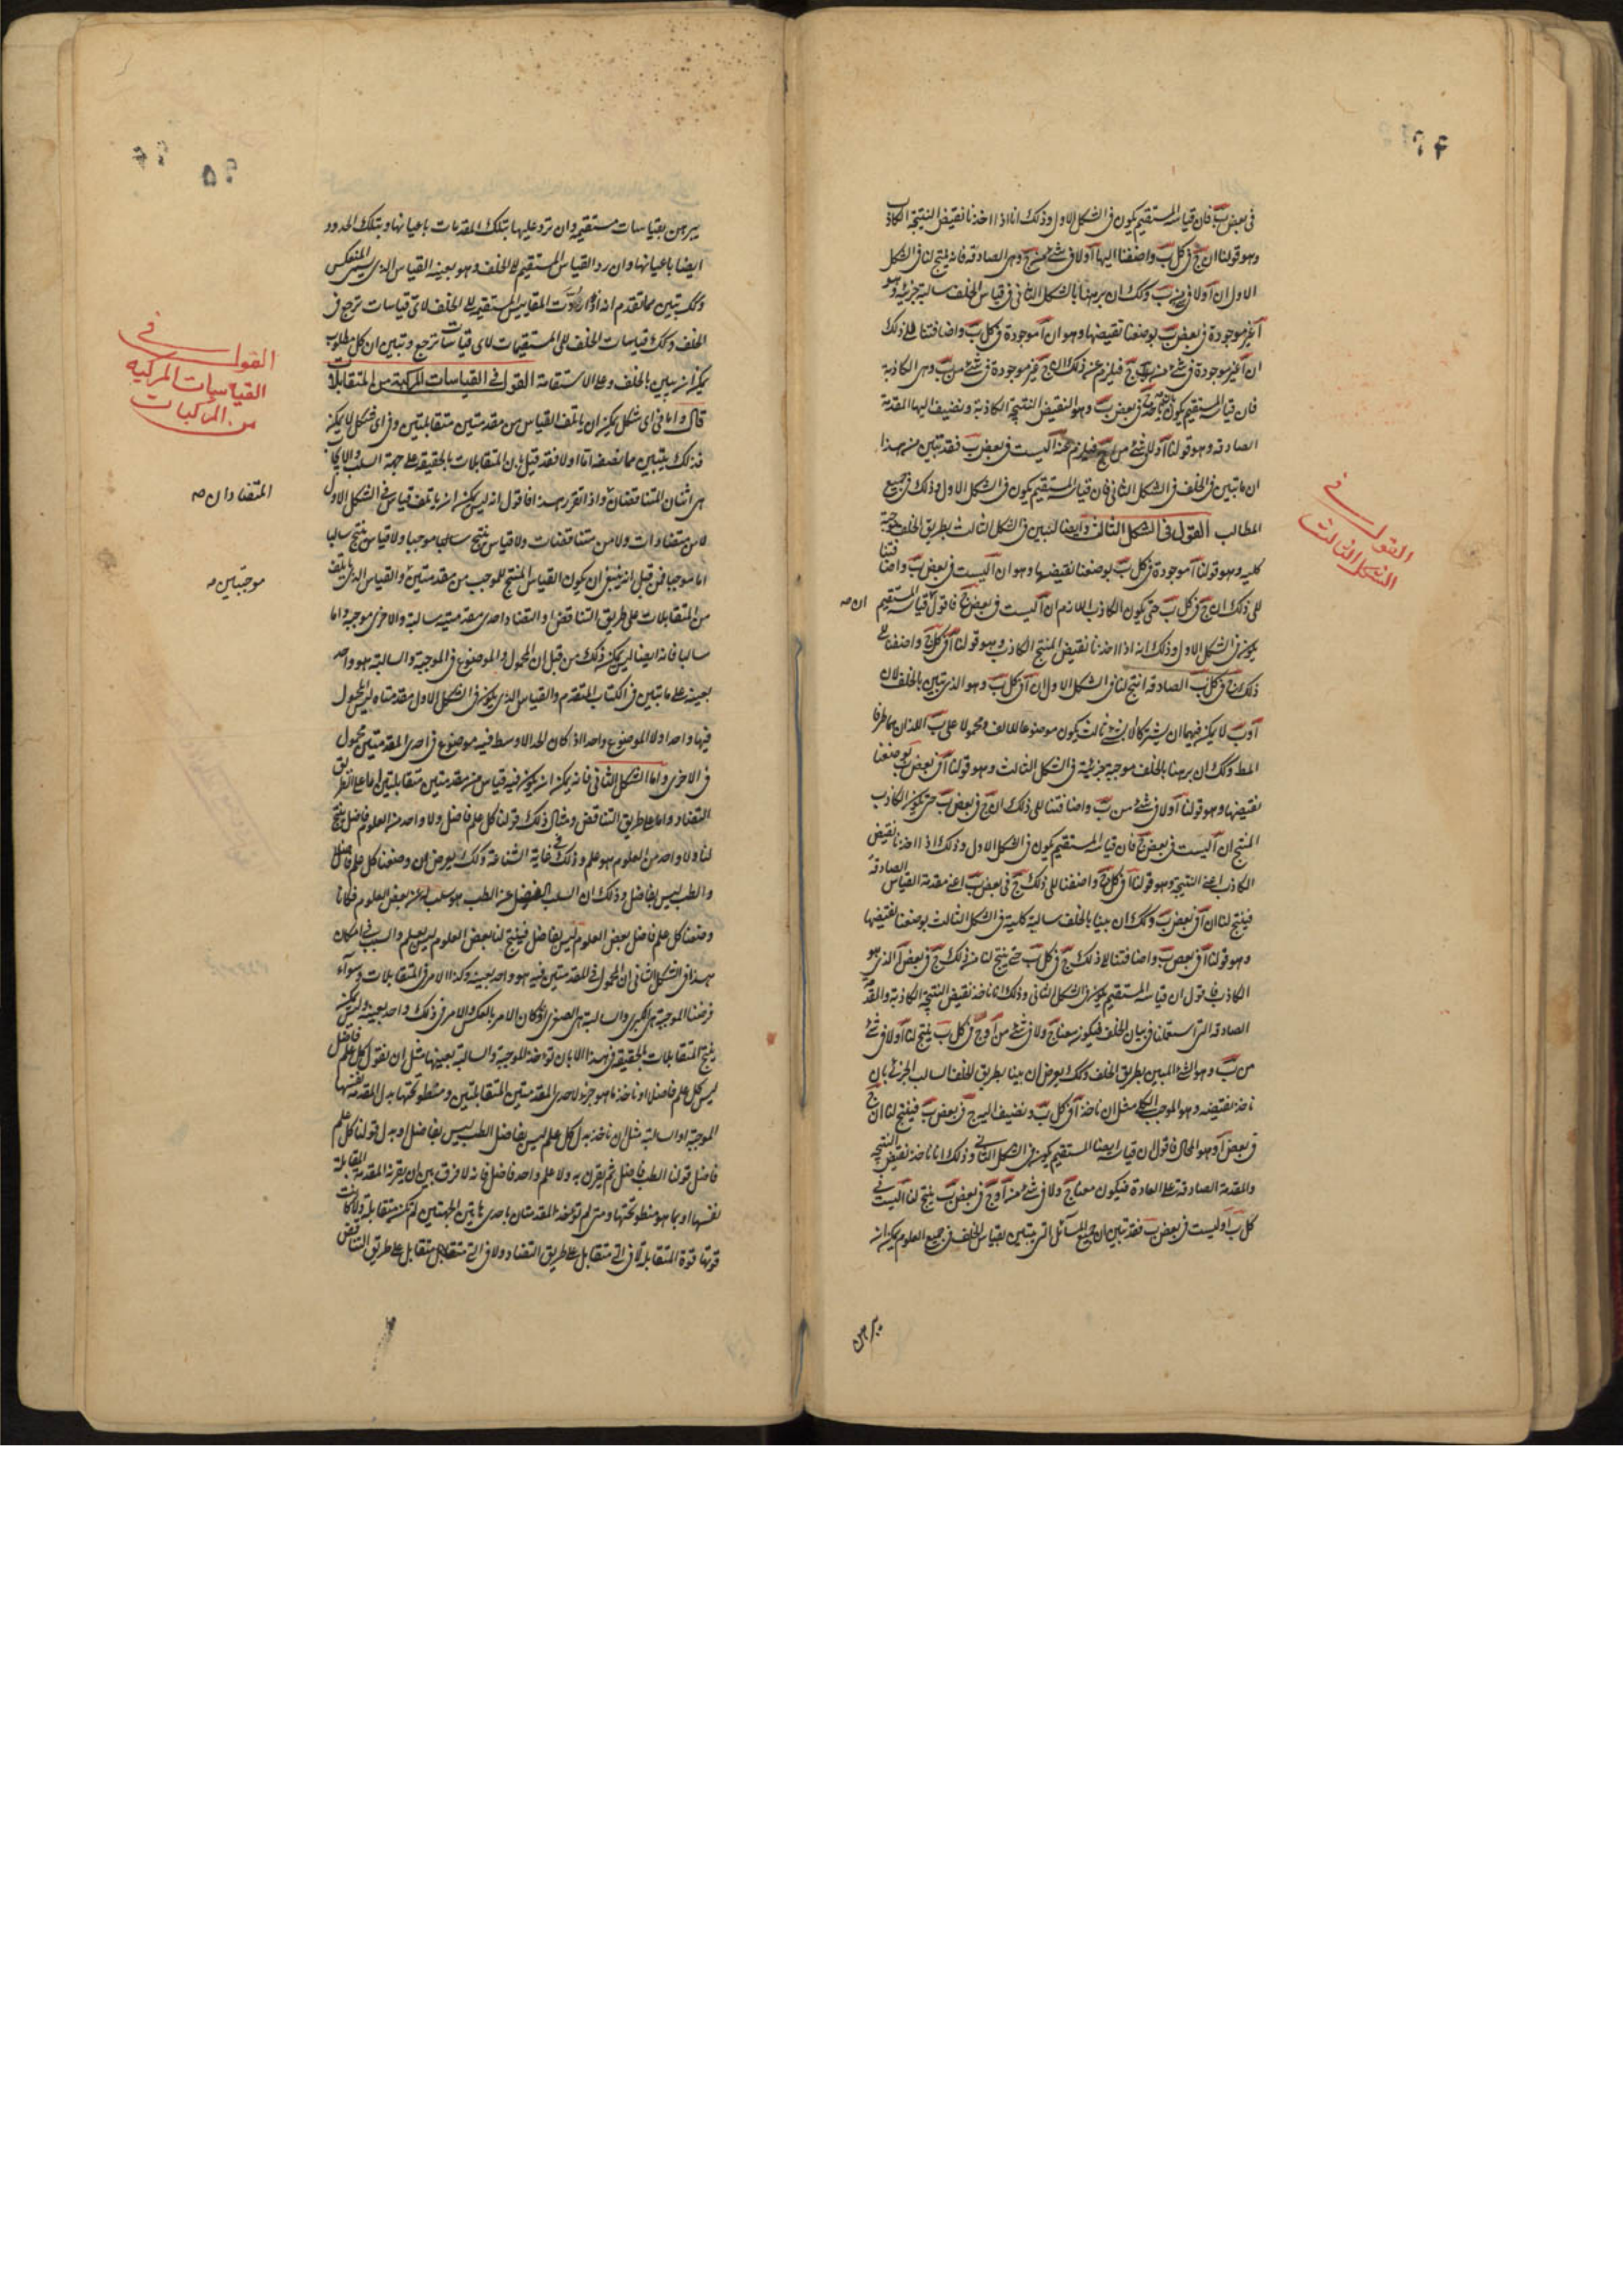 في بعض ب فان قياسه المستقيم يكون في الشكل الاول وذلك انا اذا اخذنا نقيض النتيجة الكاذب
وهو قولنا ان ج في كل ب واضفنا اليها آ ولا في شئ من ج وهي الصادقة فانه ينتج لنا في الشكل
الاول ان آ ولا في شئ من ب وكذلك ان برهنا بالشكل الثاني في قياس الخلف سالبة جزئية وهو
آ غير موجودة في بعض ب بوضعنا نقيضها وهو ان آ موجودة في كل ب واضافتنا الى ذلك
ان آ غير موجودة في شئ من ج فيلزم عنه ذلك ان ج غير موجودة في شئ من ب وهي الكاذبة
فان قياسه المستقيم يكون في بعض ب وهو النقيض النتيجة الكاذبة ونضيف اليها المقدمة
الصادقة وهو قولنا آ ولا شئ من ج فيلزم عنه آ ليست في بعض ب فقد تبين من هذا
ان ما تبين في الخلف في الشكل الثاني فان قياسه المستقيم يكون في الشكل الاول وذلك في جميع
المطالب القول في الشكل الثالث وايضا لنبين في الشكل الثالث بطريق الخلف موجبة
كلية وهو قولنا آ موجودة في كل ب بوضعنا نقيضها وهو ان آ ليست في بعض ب واضافتنا
الى ذلك ان ج في كل ب حتى يكون الكاذب اللازم ان آ ليست في بعض ج فاقول ان قياسه المستقيم
يكون في الشكل الاول وذلك انه اذا اخذنا نقيض المنتج الكاذب وهو قولنا آ في كل ج واضفنا الى
ذلك ان ج في كل ب الصادقة انتج لنا في الشكل الاول ان آ في كل ب وهو الذي تبين بالخلف لان
آ وب لا يمكن فيهما ان يشتركا الا بشئ ثالث يكون موضوعا للالف ومحمولا على ب اللذان هما طرفا
المط وكذلك ان برهنا بالخلف موجبة جزئية في الشكل الثالث وهو قولنا آ في بعض ب بوضعنا
نقيضها وهو قولنا آ ولا في شئ من ب واضافتنا الى ذلك ان ج في بعض ب حتى يكون الكاذب
المنتج ان آ ليست في بعض ج فان قياسه المستقيم يكون في الشكل الاول وذلك اذا اخذنا نقيض
الكاذب اعني النتيجة وهو قولنا آ في كل ج واضفنا الى ذلك ج في بعض ب اعني مقدمة القياس الصادقة
فينتج لنا ان آ في بعض ب وكذلك ان بينا بالخلف سالبة كلية في الشكل الثالث بوضعنا نقيضها
وهو قولنا آ في بعض ب واضافتنا الى ذلك ج في كل ب حتى ينتج لنا من ذلك ج في بعض آ الذي هو
الكاذب فاقول ان قياسه المستقيم يكون في الشكل الثاني وذلك انا ناخذ نقيض النتيجة الكاذبة والمقدمة
الصادقة التي استعملنا في بيان الخلف فيكون معنا ج ولا في شئ من آ وج في كل ب ينتج لنا آ ولا في شئ
من ب وهو الشئ المبين بطريق الخلف وكذلك يعرض ان بينا بطريق الخلف السالب الجزئي بان
ناخذ نقيضه وهو الموجب الكلي مثل ان ناخذ آ في كل ب ونضيف اليه ج في بعض ب فينتج لنا ان ج
في بعض آ وهو المحال فاقول ان قياسه ايضا المستقيم يكون في الشكل الثاني وذلك انا ناخذ نقيض النتيجة
والمقدمة الصادقة على العادة فيكون معنا ج ولا في شئ من آ وج في بعض ب ينتج لنا آ ليست في
كل ب او ليست في بعض ب فقد تبين ان جميع المسائل التي تتبين بقياس الخلف في جميع العلوم يمكن ان
القول في
الشكل الثالث
ان صح
يبرهن بقياسات مستقيمة وان ترد عليها بتلك المقدمات باعيانها وبتلك الحدود
ايضا باعيانها وان رد القياس المستقيم الى الخلف وهو بعينه القياس الذي يسمى المنعكس
وكذلك تبين مما تقدم انه اذا ردت المقاييس المستقيمة الى الخلف لاي قياسات ترجع في
الخلف وكذلك قياسات الخلف الى المستقيمات لاي قياسات ترجع وتبين ان كل مطلوب
يمكن ان يبين بالخلف وعلى الاستقامة القول في القياسات المركبة من المتقابلات
قال واما في اي شكل يمكن ان يأتلف القياس من مقدمتين متقابلتين وفي اي شكل لا يمكن
فذلك يتبين مما نصفه اما اولا فقد قيل ان المتقابلات بالحقيقة على جهة السلب والايجاب
هي اثنان المتناقضتان واذا تقرر هذا فاقول انه ليس يمكن ان يأتلف قياس في الشكل الاول
لا من متضادات ولا من متناقضات ولا قياس ينتج سالبا موجبا ولا قياس ينتج سالبا
اما موجبا فمن قبل انه ينبغي ان يكون القياس المنتج للموجب من مقدمتين والقياس الذي يأتلف
من المتقابلات على طريق التناقض او التضاد احدى مقدمتيه سالبة والاخرى موجبة واما
سالبا فانه ايضا ليس يمكن ذلك من قبل ان المحمول والموضوع في الموجبة والسالبة هو واحد
بعينه على ما تبين في الكتاب المتقدم والقياس الذي يكون في الشكل الاول مقدمتاه ليس المحمول
فيها واحدا ولا الموضوع واحدا اذ كان الحد الاوسط فيه موضوع في احدى المقدمتين محمول
في الاخرى واما الشكل الثاني فانه يمكن ان يكون فيه قياس من مقدمتين متقابلتين اما على طريق
التضاد واما على طريق التناقض ومثال ذلك قولنا كل علم فاضل ولا واحد من العلوم فاضل ينتج
لنا ولا واحد من العلوم هو علم وذلك في غاية الشناعة وكذلك يعرض ان وضعنا كل علم فاضل
والطب ليس بفاضل وذلك ان السلب الفضل عن الطب هو سلبه عن بعض العلوم فكانا
وضعنا كل علم فاضل بعض العلوم ليس بفاضل فينتج لنا بعض العلوم ليس بعلم والسبب في امكان
هذا في الشكل الثاني ان المحمول في المقدمتين فيه هو واحد بعينه وكذا الامر في المتقابلات وسواء
فرضنا الموجبة هي الكبرى والسالبة هي الصغرى او كان الامر بالعكس والامر في ذلك واحد بعينه وليس يمكن
ينتج المتقابلات بالحقيقة في هذا الا بان تؤخذ الموجبة والسالبة بعينها مثل ان نقول كل علم فاضل
ليس كل علم فاضل او ناخذ ما هو جزء لاحدى المقدمتين المتقابلتين ومنطو تحتها بدل المقدمة نفسها
الموجبة او السالبة مثل ان ناخذ بدل كل علم ليس بفاضل الطب ليس بفاضل او بدل قولنا كل علم
فاضل قولنا الطب فاضل ثم يقرن به ولا علم واحد فاضل فانه لا فرق بين ان يقرن المقدمة المقابلة
نفسها او بما هو منطو تحتها ومتى لم توخذ المقدمتان باحدى هاتين الجهتين لم تكن متقابلة ولا كانت
قوتها قوة المتقابلة لا في التي متقابل على طريق التضاد ولا في التي متقابل على طريق التناقض
القول في
القياسات المركبه
من المركبات
المتضادان صح
موجبتين صح